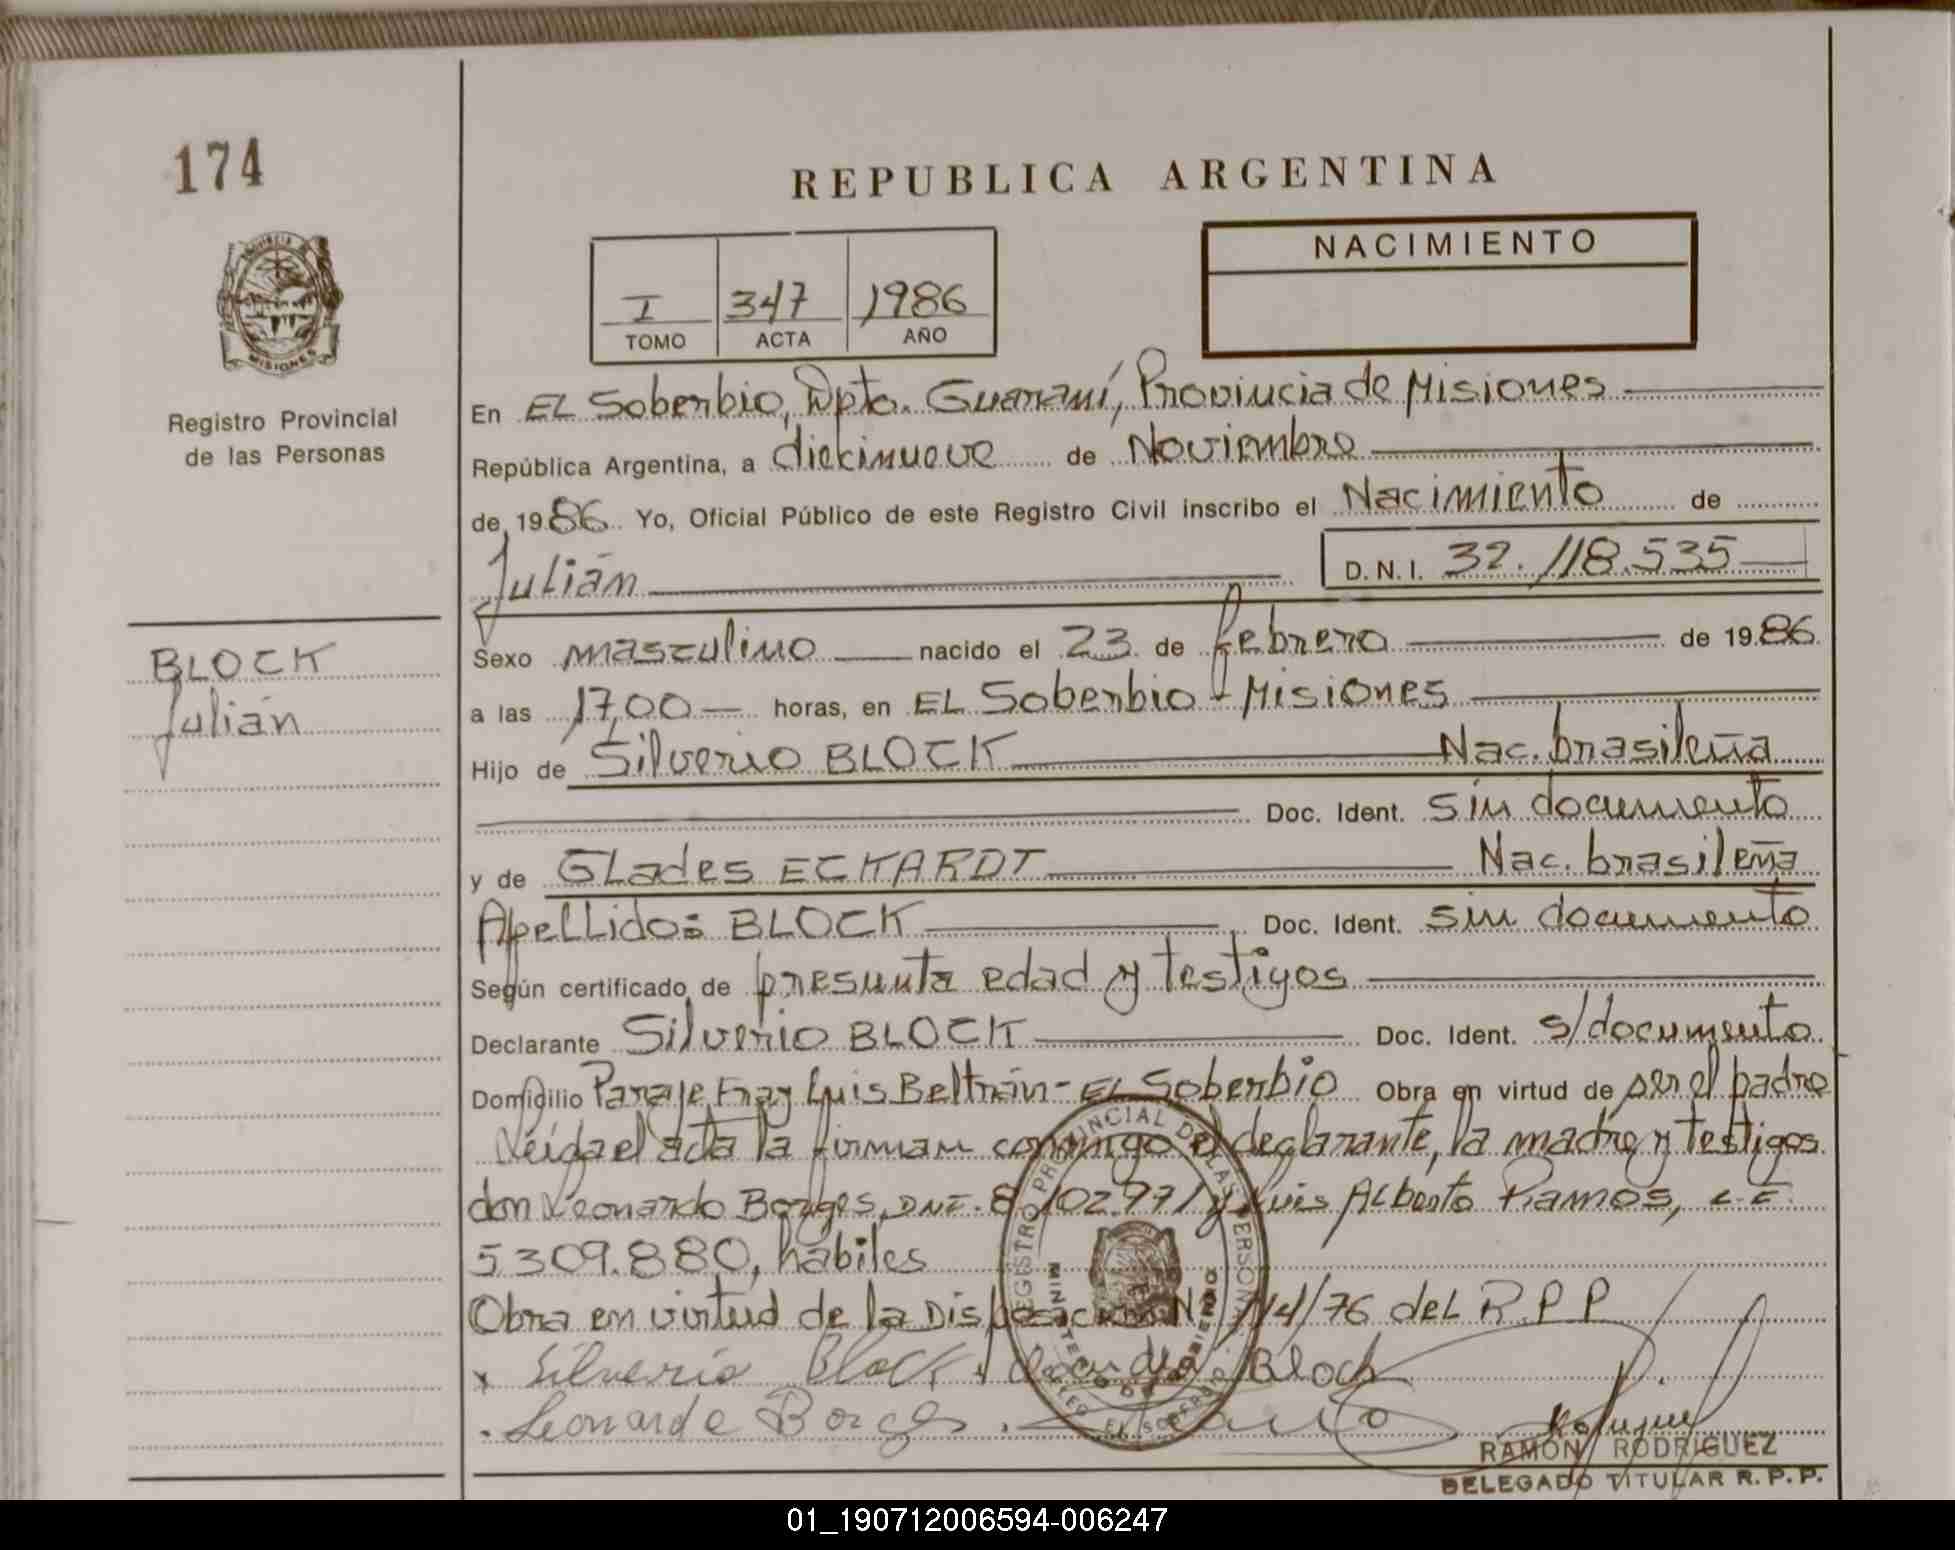 174
REPUBLICA ARGENTINA
MISIONES
Registro Provincial
de las Personas
I 347 1986
TOMO ACTA AÑO
NACIMIENTO
En EL Soberbio, Dpto. Guaraní, Provincia de Misiones
República Argentina, a diecinueve de Noviembre
de 1986 Yo, Oficial Público de este Registro Civil inscribo el Nacimiento de
Julián D.N.I. 32.118.535
BLOCK
Julián
Sexo masculino nacido el 23 de febrero de 1986
a las 17,00 horas, en EL Soberbio - Misiones
Hijo de Silverio BLOCK Nac. brasileña
Doc. Ident. sin documento
y de GLades ECKARDT Nac. brasileña
Apellido: BLOCK Doc. Ident. sin documento
Según certificado de presunta edad y testigos
Declarante Silverio BLOCK Doc. Ident. s/documento
Domicilio Paraje Fray Luis Beltrán - EL Soberbio Obra en virtud de ser el padre
Leída el acta la firman conmigo el declarante, la madre y testigos
don Leonardo Borges, DNI. 8.102.771 y Luis ALberto Ramos, L.E.
5309.880, hábiles
Obra en virtud de la Disposición N° 114/76 del R.P.P
x Silverio Block Block
Leonardo Borges
REGISTRO PROVINCIAL DE LAS PERSONAS
MINISTERIO DE GOBIERNO
EL SOBERBIO
RAMON RODRIGUEZ
DELEGADO TITULAR R.P.P.
01_190712006594-006247